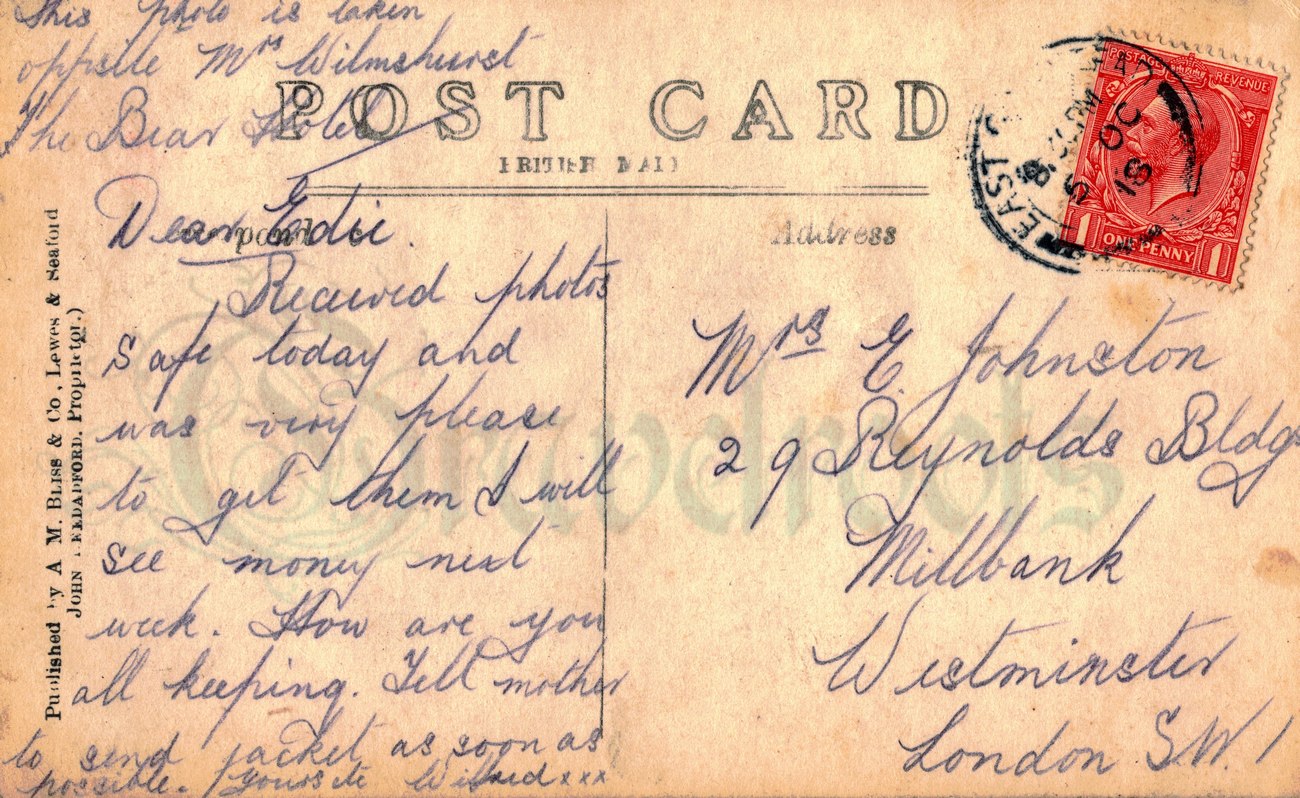 This photo is taken
opposite Mrs Wilmshurst
The Bear Hotel
POST CARD
BRITISH MADE
Dear Edie.
Received photos
safe today and
was very please
to get them I will
see money next
week. How are you
all keeping. Tell mother
to send jacket as soon as
possible. Yours Wilfred xxx
Address
Mrs E. Johnston
29 Reynolds Bldgs
Millbank
Westminster
London S.W.1
POSTAGE REVENUE
1 ONE PENNY 1
EAST
5 OC
18
Published by A. M. Bliss & Co., Lewes & Seaford
John Proprietor.)